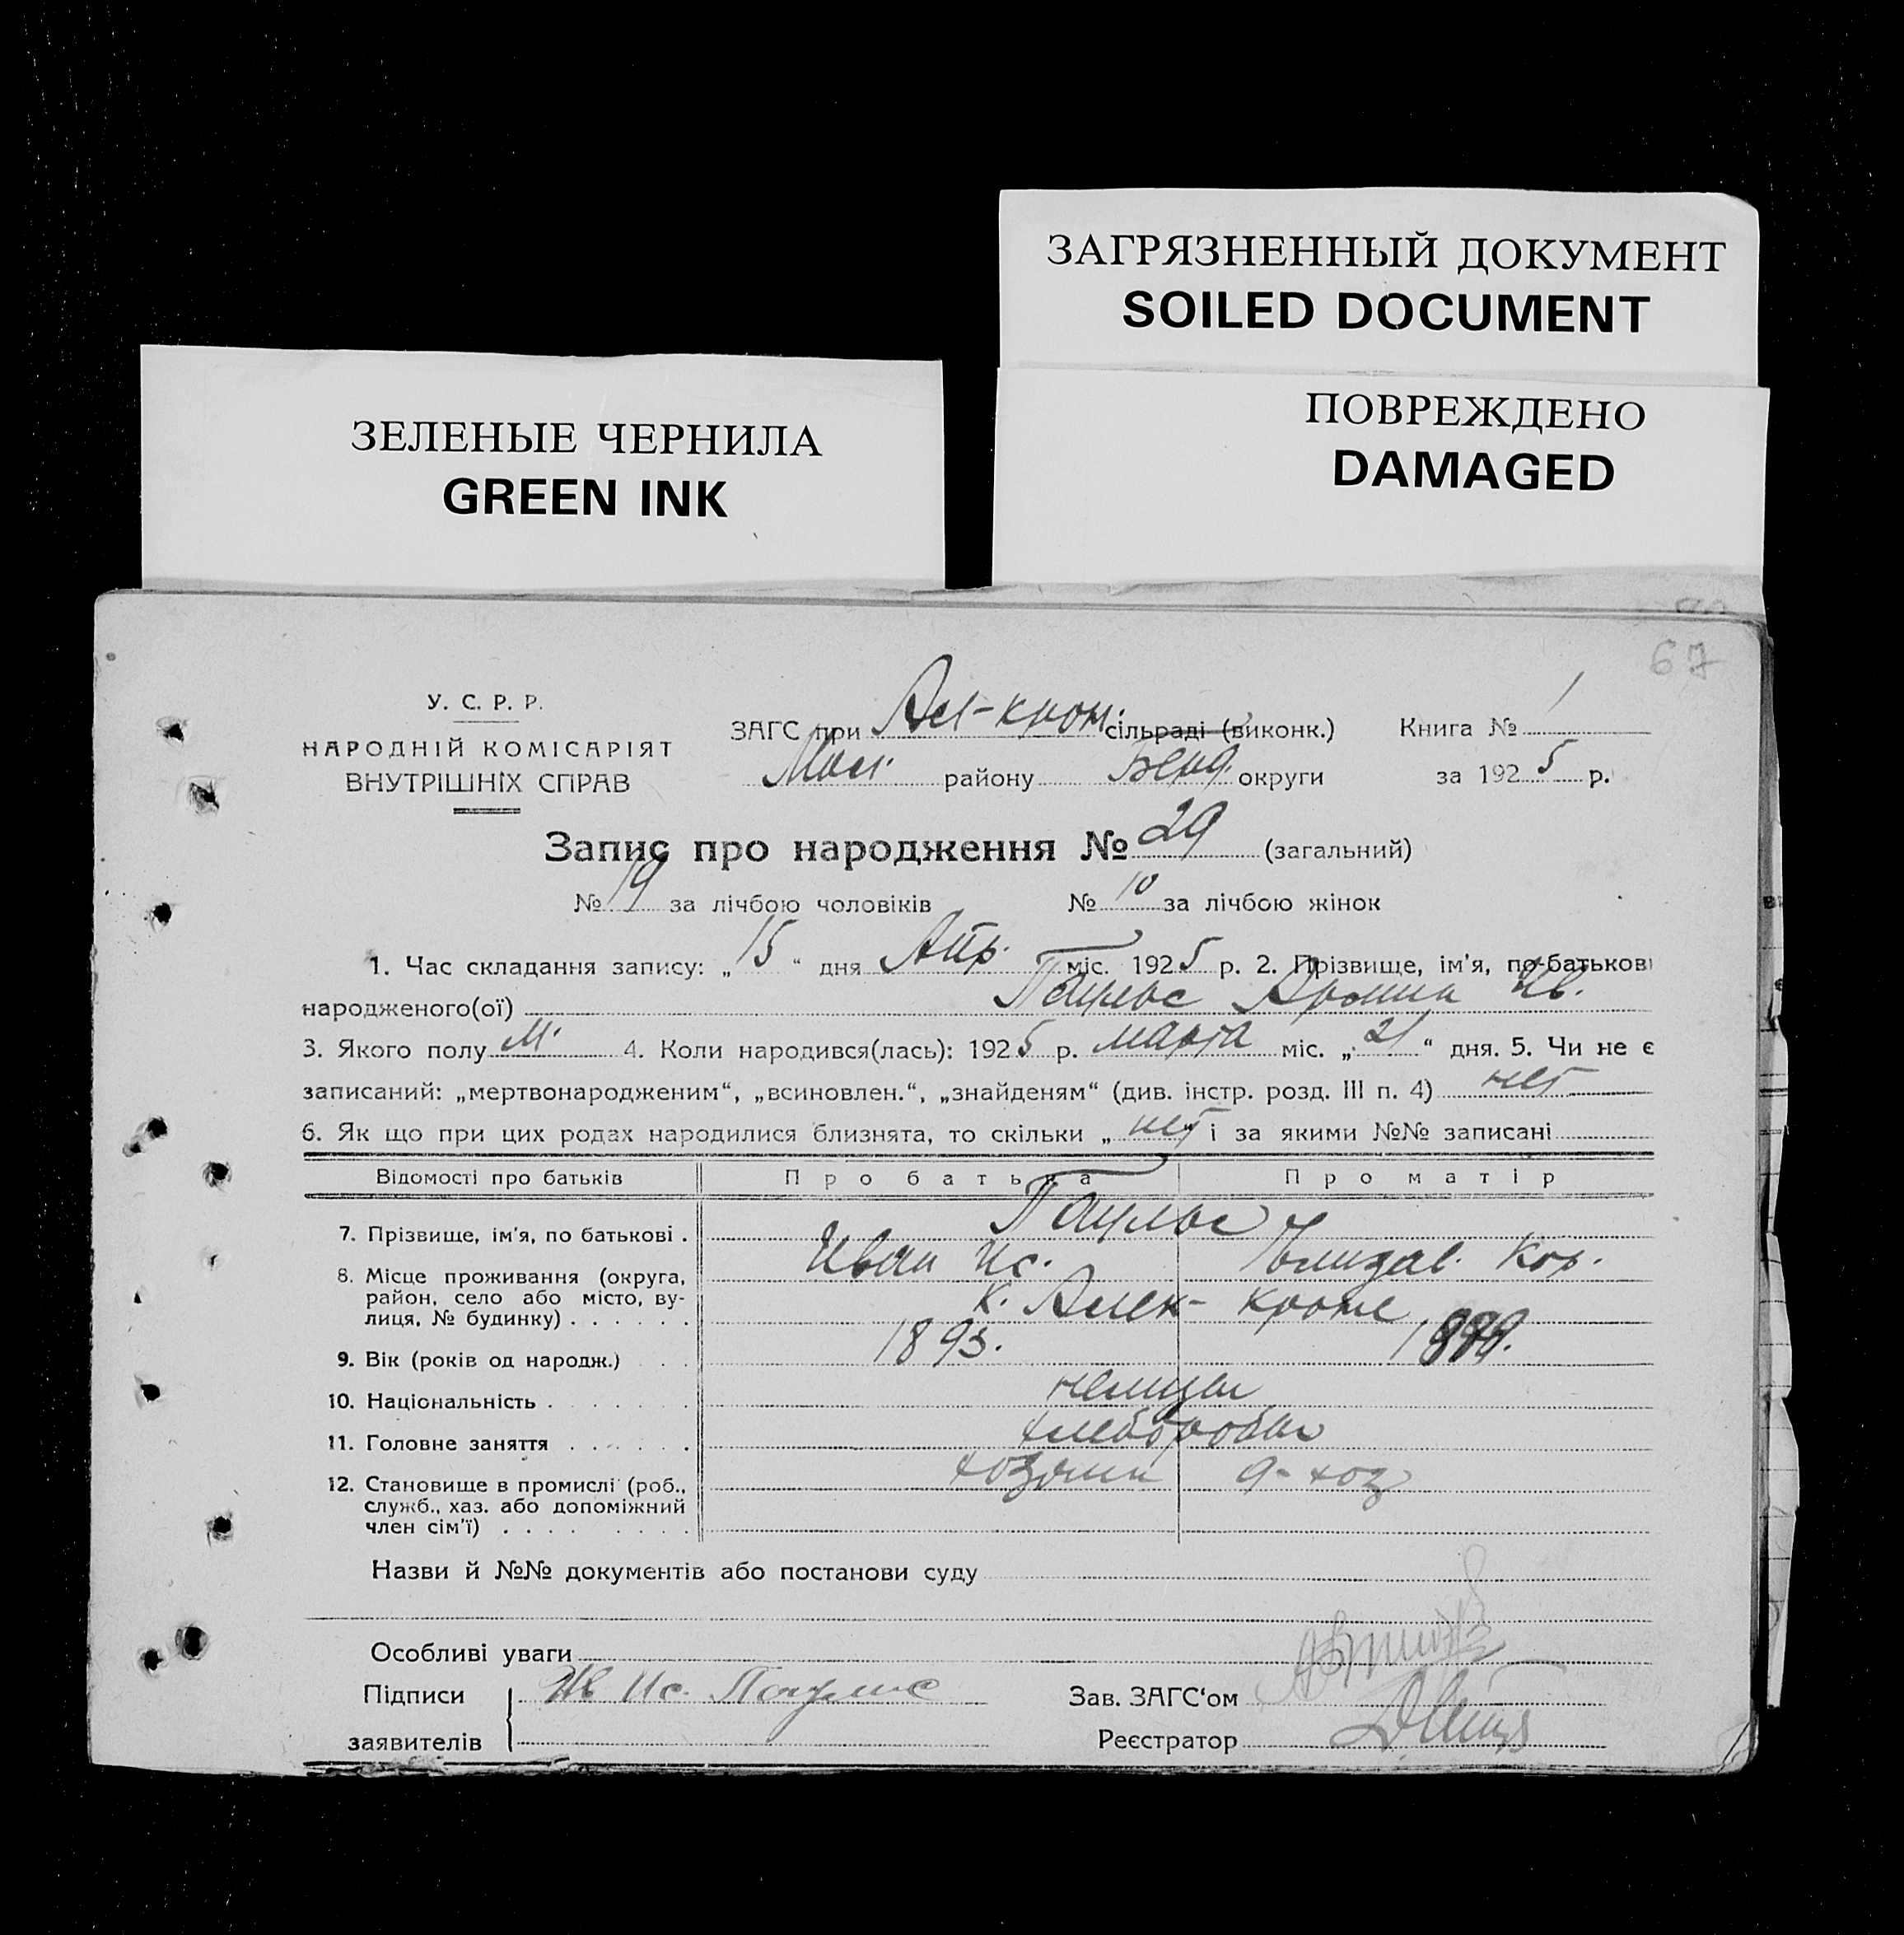 ЗАГРЯЗНЕННЫЙ ДОКУМЕНТ
SOILED DOCUMENT
ПОВРЕЖДЕНО
DAMAGED
ЗЕЛЕНЫЕ ЧЕРНИЛА
GREEN INK
67
У. С. Р. Р.
НАРОДНІЙ КОМІСАРІЯТ
ВНУТРІШНІХ СПРАВ
ЗАГС при Ал-крон. сільраді (виконк.) Книга № 1
Мол. району Берд. округи за 1925 р.
Запис про народження № 29 (загальний)
№ 19 за лічбою чоловіків № 10 за лічбою жінок
1. Час складання запису: „15“ дня Апр. міс. 1925 р. 2. Прізвище, ім'я, по-батькові
народженого(ої) Паульс Ив.
3. Якого полу М. 4. Коли народився(лась): 1925 р. марта міс. „21“ дня. 5. Чи не є
записаний: „мертвонародженим“, „всиновлен.“, „знайденям“ (див. інстр. розд. III п. 4) нет
6. Як що при цих родах народилися близнята, то скільки „нет“ і за якими №№ записані
Відомості про батьків Про батька Про матір
7. Прізвище, ім'я, по батькові . Паульс
Иван Ис. Елизав. Кор.
8. Місце проживання (округа,
район, село або місто, ву-
лиця, № будинку) . . . . . . к. Алек-кроне
9. Вік (років од народж.) . . . 1893.
10. Національність . . . . . . . немцы
11. Головне заняття . . . . . . хлеборобы
12. Становище в промислі (роб.,
служб., хаз. або допоміжний
член сім'ї) . . . . . . . . . хозяин д-хоз
Назви й №№ документів або постанови суду
Особливі уваги
Підписи Ив Ис. Паульс Зав. ЗАГС'ом
заявителів Реєстратор